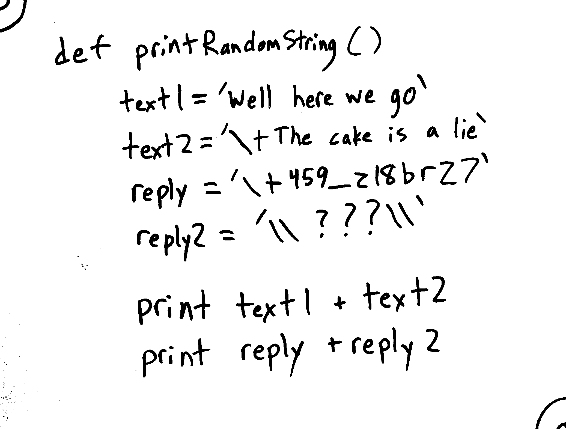 def printRandomString()
text1 = 'Well here we go'
text2 = '\tThe cake is a lie'
reply = '\t459_z18brZ7'
reply2 = '\\ ???\\'
print text1 + text2
print reply + reply2